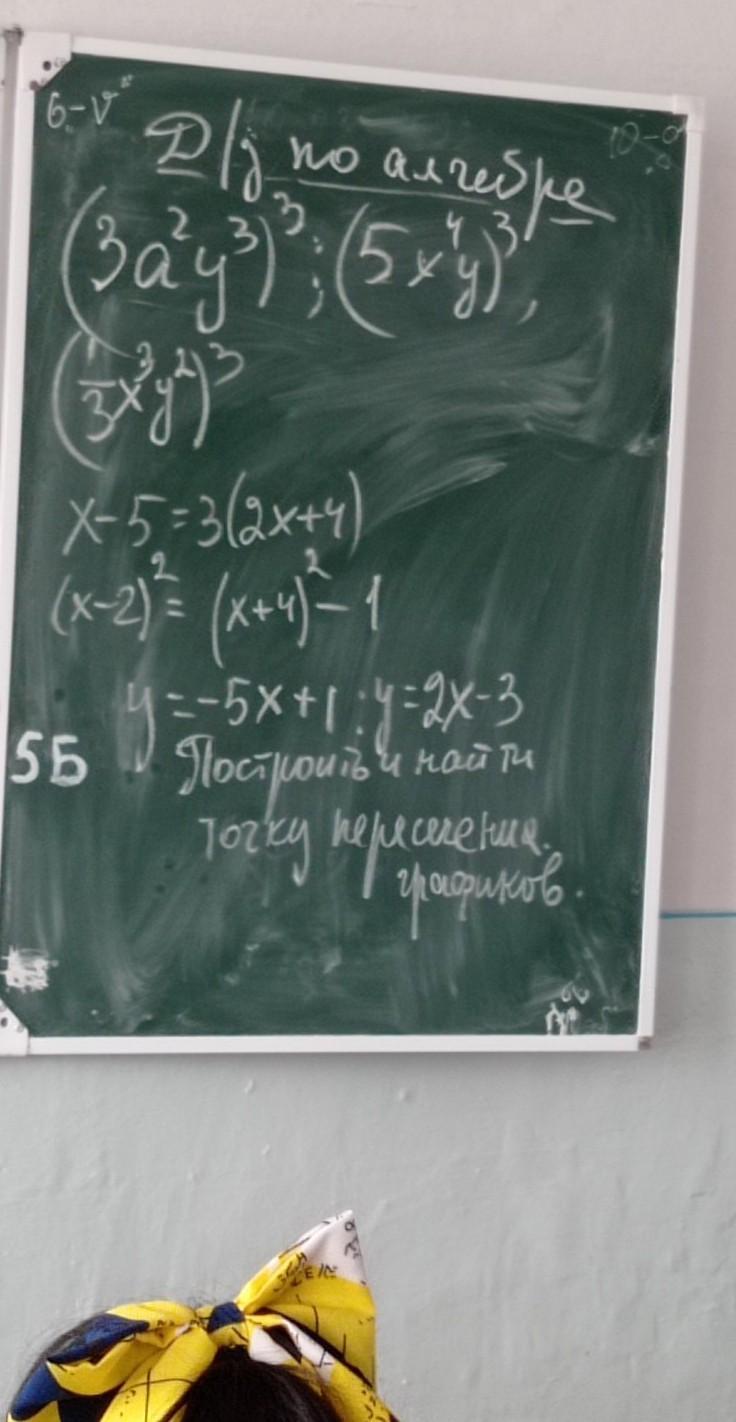 6-V
Д/з по алгебре
(3a²y³)³; (5x⁴y)³,
(1/3x³y²)³
x-5=3(2x+4)
(x-2)²= (x+4)²-1
y=-5x+1; y=2x-3
5Б Построить и найти
точку пересечения
графиков.